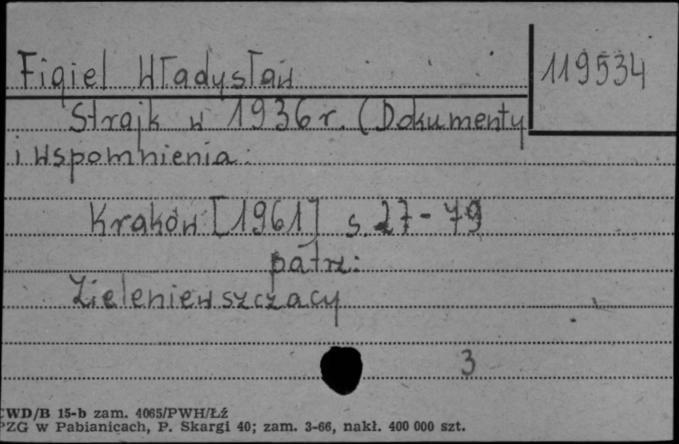 Figiel Władysław
119534
Strajk w 1936 r. (Dokumenty
i wspomnienia.
Kraków [1961] s. 27-79
patrz:
Zieleniewszczacy
3
CWD/B 15-b zam. 4065/PWH/Łź
PZG w Pabianicach, P. Skargi 40; zam. 3-66, nakł. 400 000 szt.